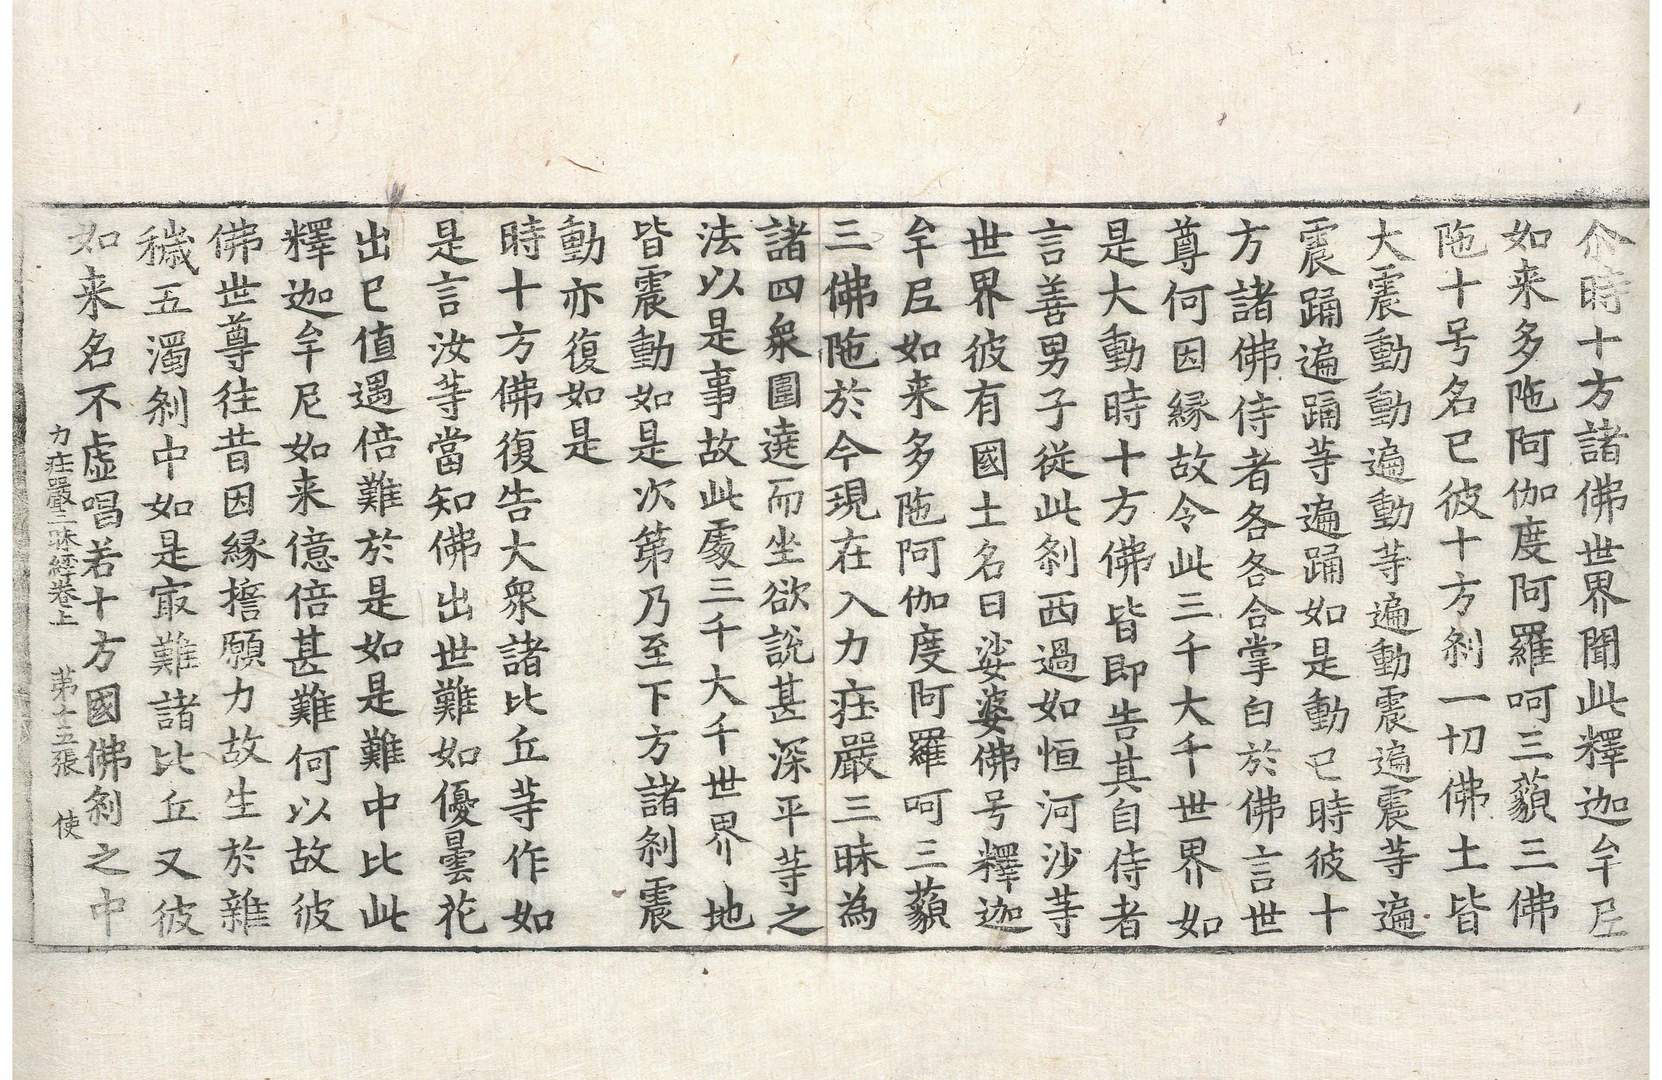 尒時十方諸佛世界聞此釋迦牟尼
如来多陁阿伽度阿羅呵三藐三佛
陁十号名已彼十方刹一切佛土皆
大震動動遍動等遍動震遍震等遍
震踊遍踊等遍踊如是動已時彼十
方諸佛侍者各各合掌白於佛言世
尊何因縁故令此三千大千世界如
是大動時十方佛皆即告其自侍者
言善男子從此刹西過如恒河沙等
世界彼有國土名曰娑婆佛号釋迦
牟尼如来多陁阿伽度阿羅呵三藐
三佛陁於今現在入力荘嚴三昧為
諸四衆圍遶而坐欲說甚深平等之
法以是事故此處三千大千世界地
皆震動如是次第乃至下方諸刹震
動亦復如是
時十方佛復告大衆諸比丘等作如
是言汝等當知佛出世難如優曇花
出已值遇倍難於是如是難中比此
釋迦牟尼如来億倍甚難何以故彼
佛世尊往昔因縁擔願力故生於雜
穢五濁刹中如是㝡難諸比丘又彼
如来名不虚唱若十方國佛刹之中
力荘嚴三昧經卷上 第十五張 使